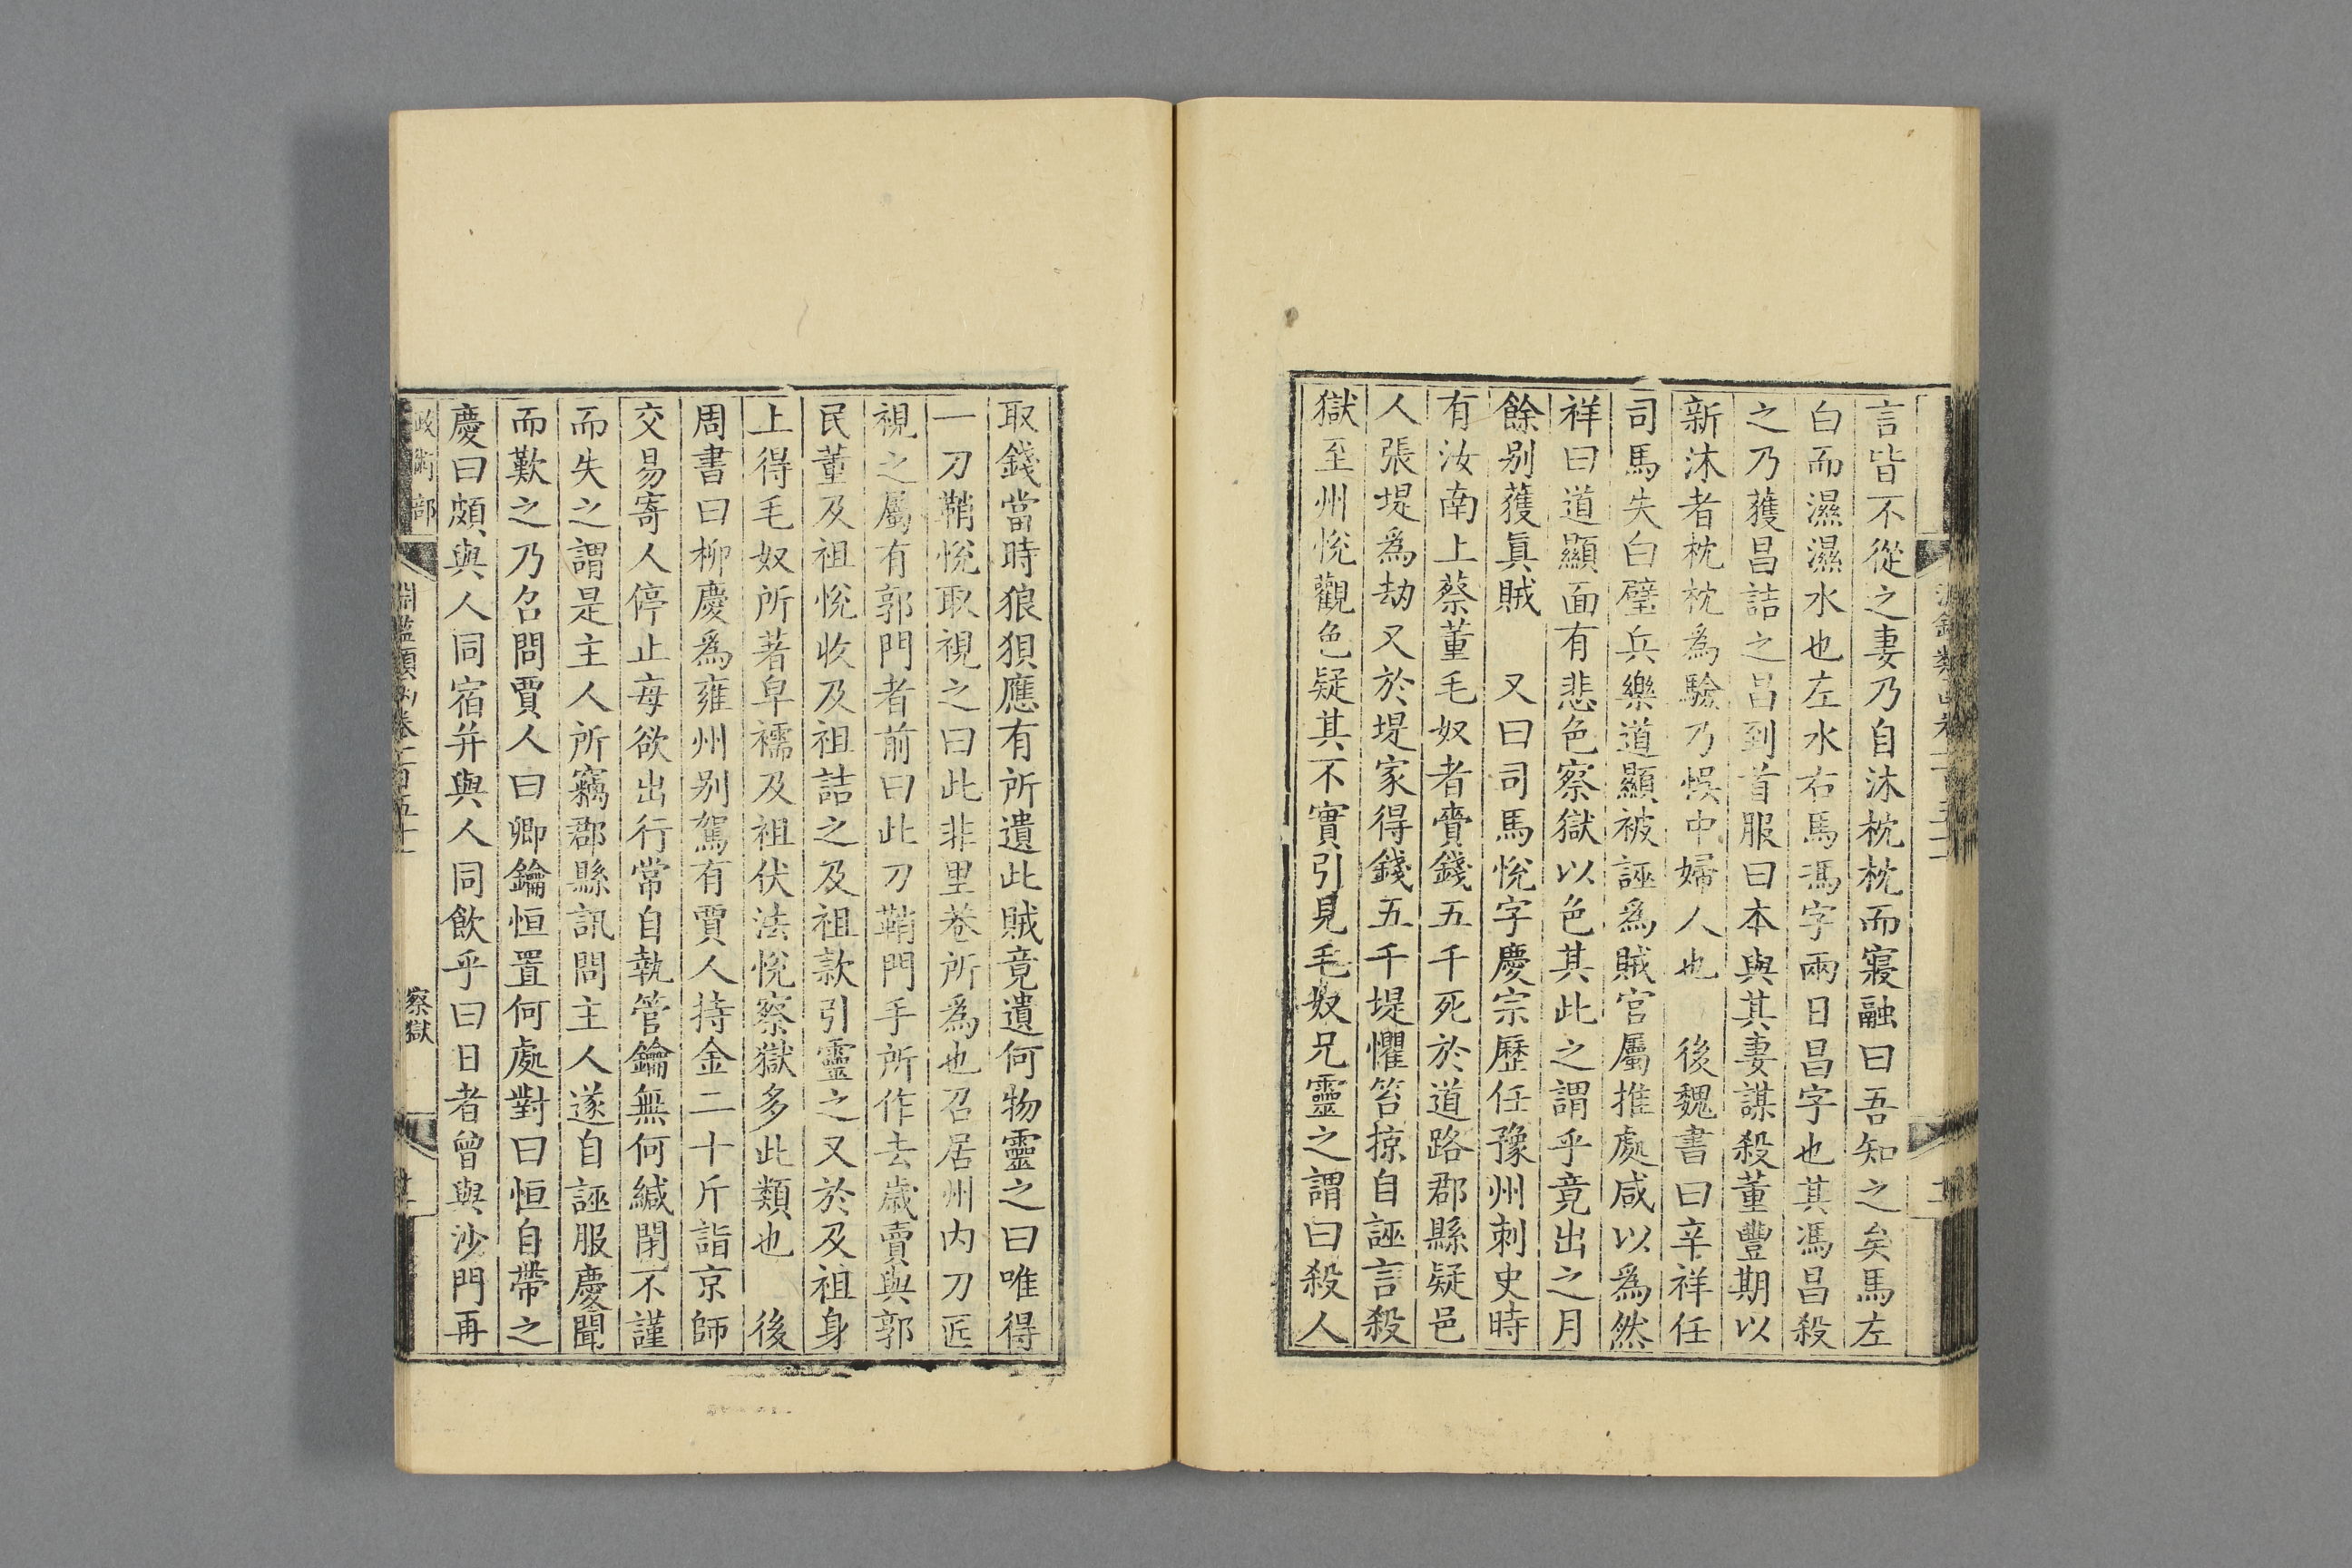 言皆不從之妻乃自沐枕枕而寢融曰吾知之矣馬左
白而濕濕水也左水右馬馮字兩日昌字也其馮昌殺
之乃獲昌詰之昌到首服曰本與其妻謀殺董豐期以
新沐者枕枕爲驗乃悞中婦人也　後魏書曰辛祥任
司馬失白璧兵樂道顯被誣爲賊官屬推處咸以爲然
祥曰道顯面有悲色察獄以色其此之謂乎竟出之月
餘别獲真賊　又曰司馬悅字慶宗歷任豫州刺史時
有汝南上蔡董毛奴者賫錢五千死於道路郡縣疑邑
人張堤爲劫又於堤家得錢五千堤懼笞掠自誣言殺
獄至州悅觀色疑其不實引見毛奴兄靈之謂曰殺人
取錢當時狼狽應有所遺此賊竟遺何物靈之曰唯得
一刀鞘悅取視之曰此非里巷所爲也召居州内刀匠
視之屬有郭門者前曰此刀鞘門手所作去歲賣與郭
民董及祖悅收及祖詰之及祖款引靈之又於及祖身
上得毛奴所著皁襦及祖伏法悅察獄多此類也　後
周書曰柳慶爲雍州别駕有賈人持金二十斤詣京師
交易寄人停止每欲出行常自執管鑰無何緘閉不謹
而失之謂是主人所竊郡縣訊問主人遂自誣服慶聞
而歎之乃召問賈人曰卿鑰恒置何處對曰恒自帶之
慶曰頗與人同宿并與人同飲乎曰日者曾與沙門再
政術部
淵鑑類函卷一百五十一
察獄